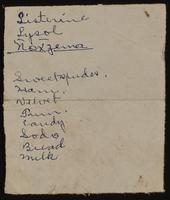 Listerine
Lysol
Noxzema
Sweetpotatoes.
Ham.
Velvet
Rum.
Candy
Soda
Bread
Milk